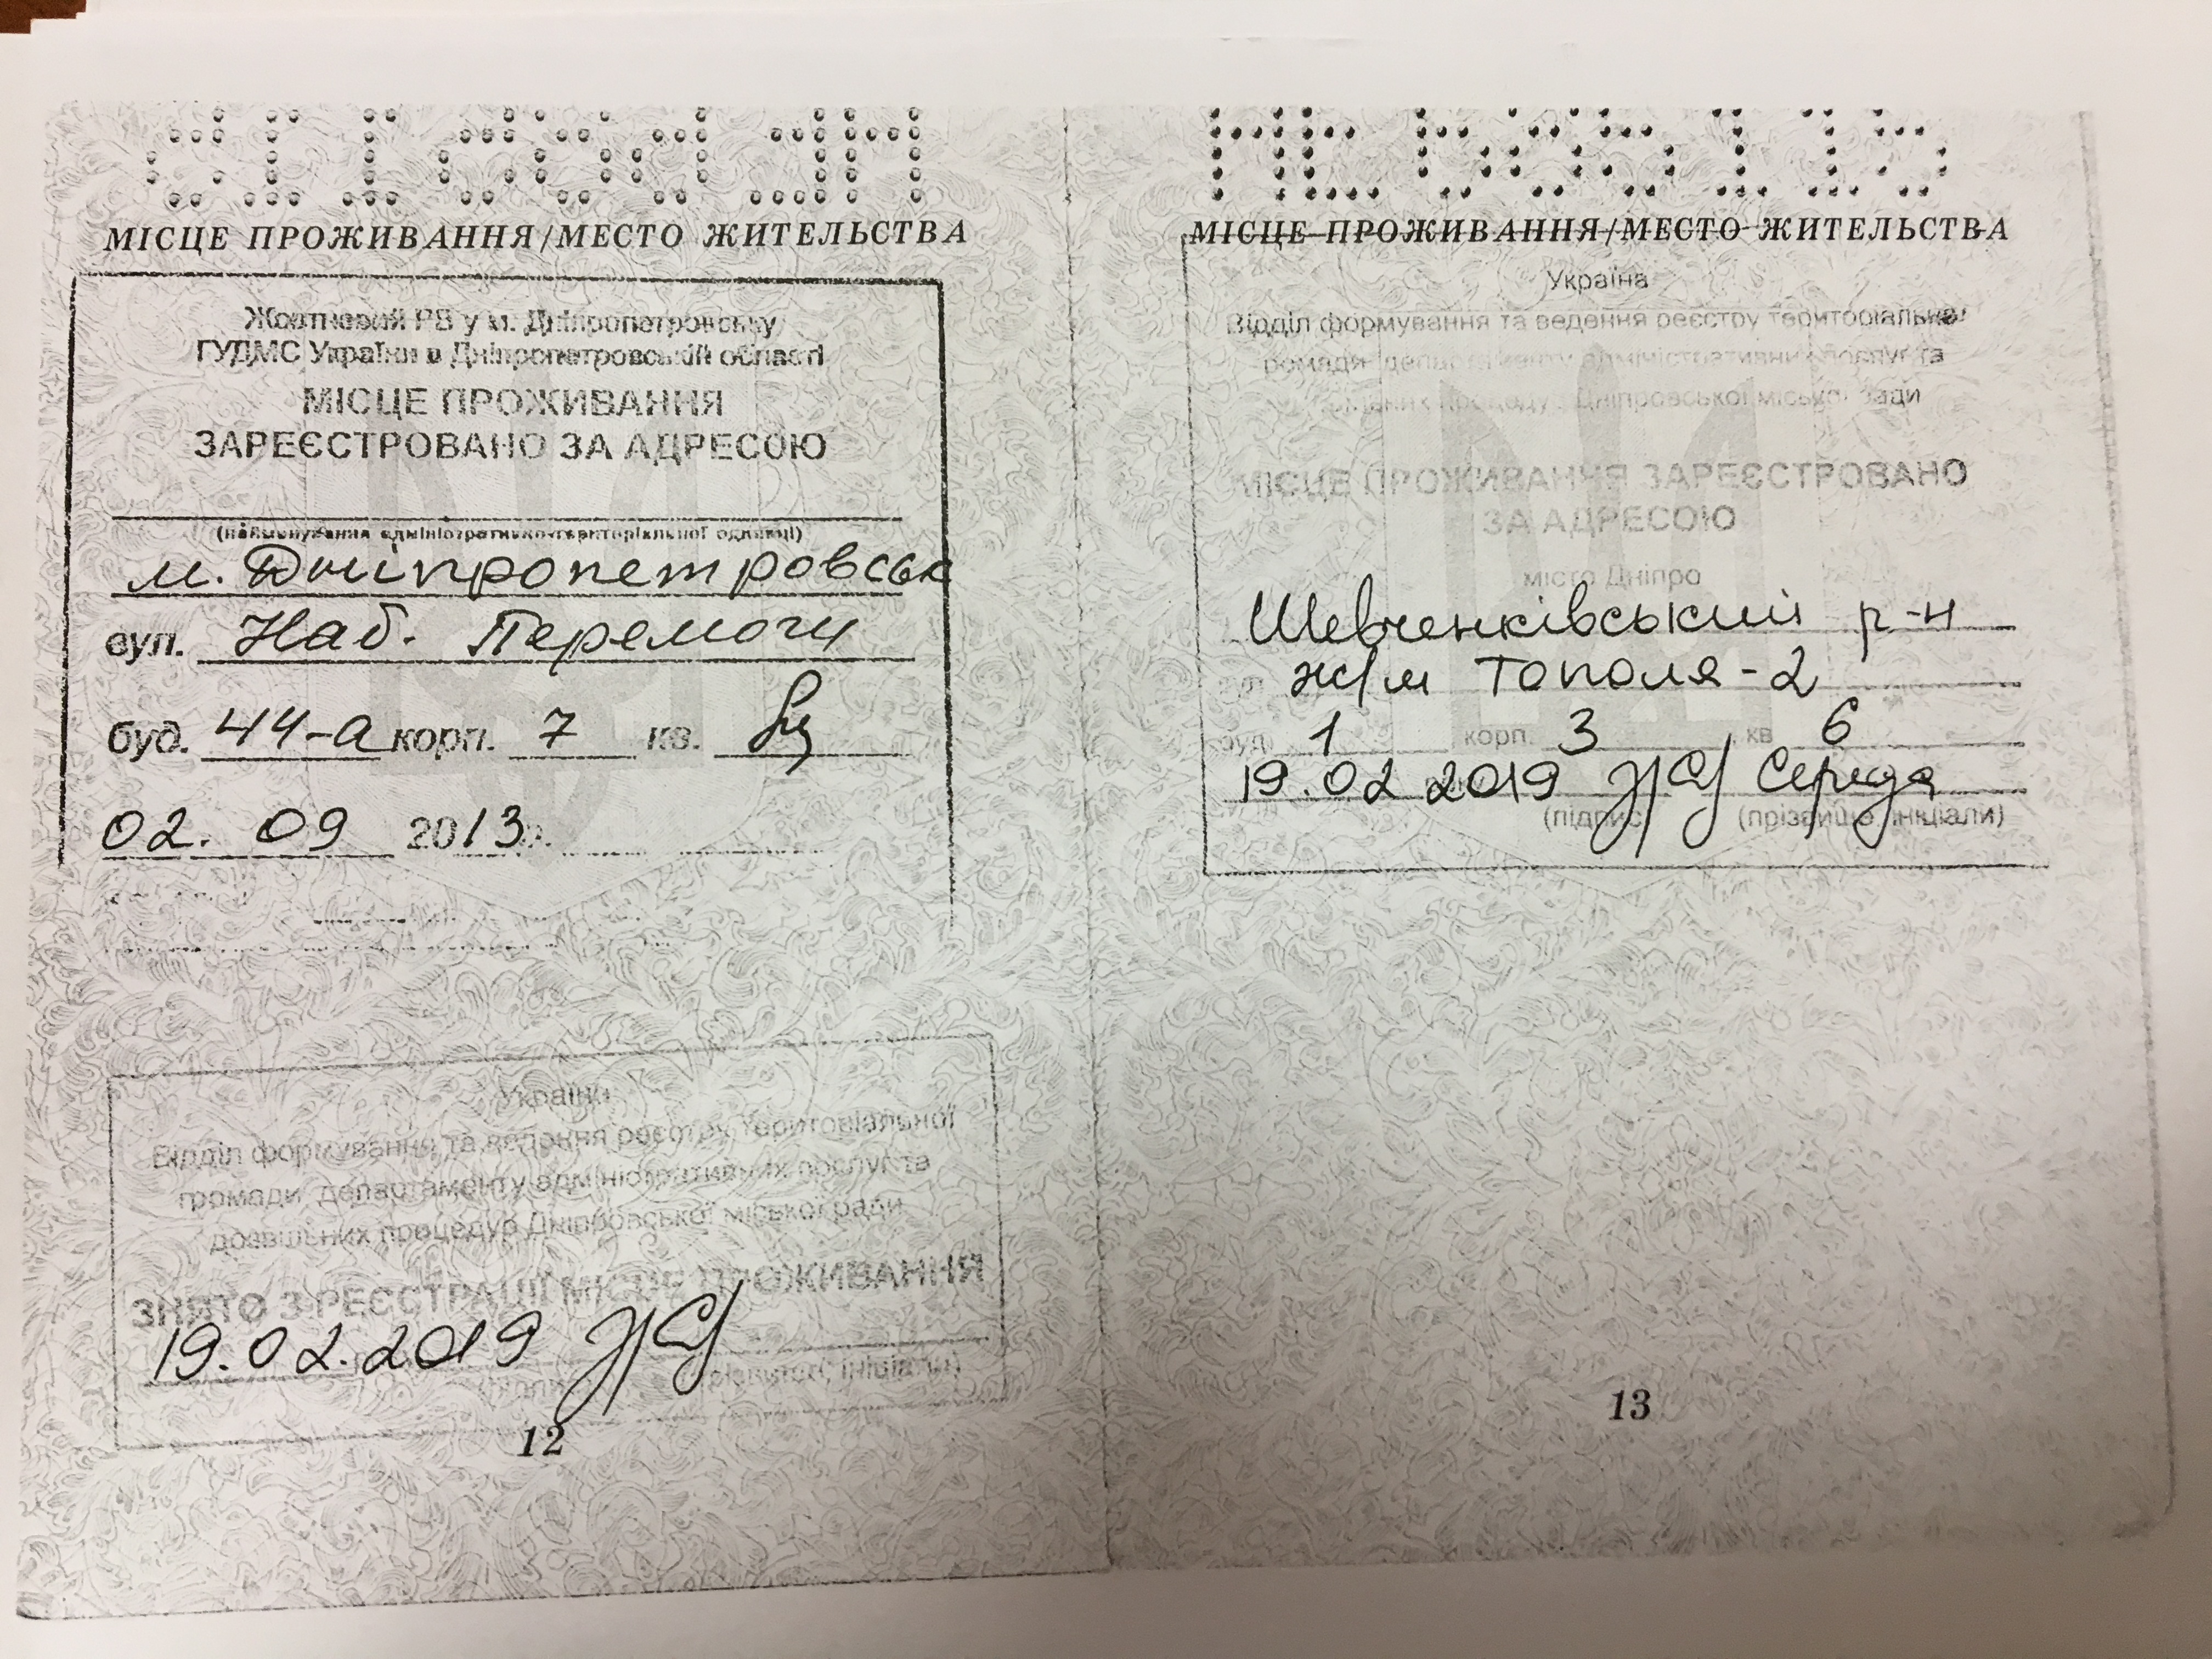 МІСЦЕ ПРОЖИВАННЯ/МЕСТО ЖИТЕЛЬСТВА
Жовтневий РВ у м. Дніпропетровську
ГУДМС України в Дніпропетровській області
МІСЦЕ ПРОЖИВАННЯ
ЗАРЕЄСТРОВАНО ЗА АДРЕСОЮ
(найменування адміністративно-територіальної одиниці)
м. Дніпропетровськ
вул. Наб. Перемоги
буд. 44-а корп. 7 кв.
02. 09 2013 р.
Україна
Відділ формування та ведення реєстру територіальної
громади департаменту адміністративних послуг та
дозвільних процедур Дніпровської міської ради
ЗНЯТО З РЕЄСТРАЦІЇ МІСЦЕ ПРОЖИВАННЯ
19.02.2019
12
МІСЦЕ ПРОЖИВАННЯ/МЕСТО ЖИТЕЛЬСТВА
Україна
Відділ формування та ведення реєстру територіальної
громади департаменту адміністративних послуг та
дозвільних процедур Дніпровської міської ради
МІСЦЕ ПРОЖИВАННЯ ЗАРЕЄСТРОВАНО
ЗА АДРЕСОЮ
місто Дніпро
Шевченківський р-н
ж/м Тополя-2
буд. 1 корп. 3 кв 6
19.02 2019 Середа
(підпис) (прізвище, ініціали)
13